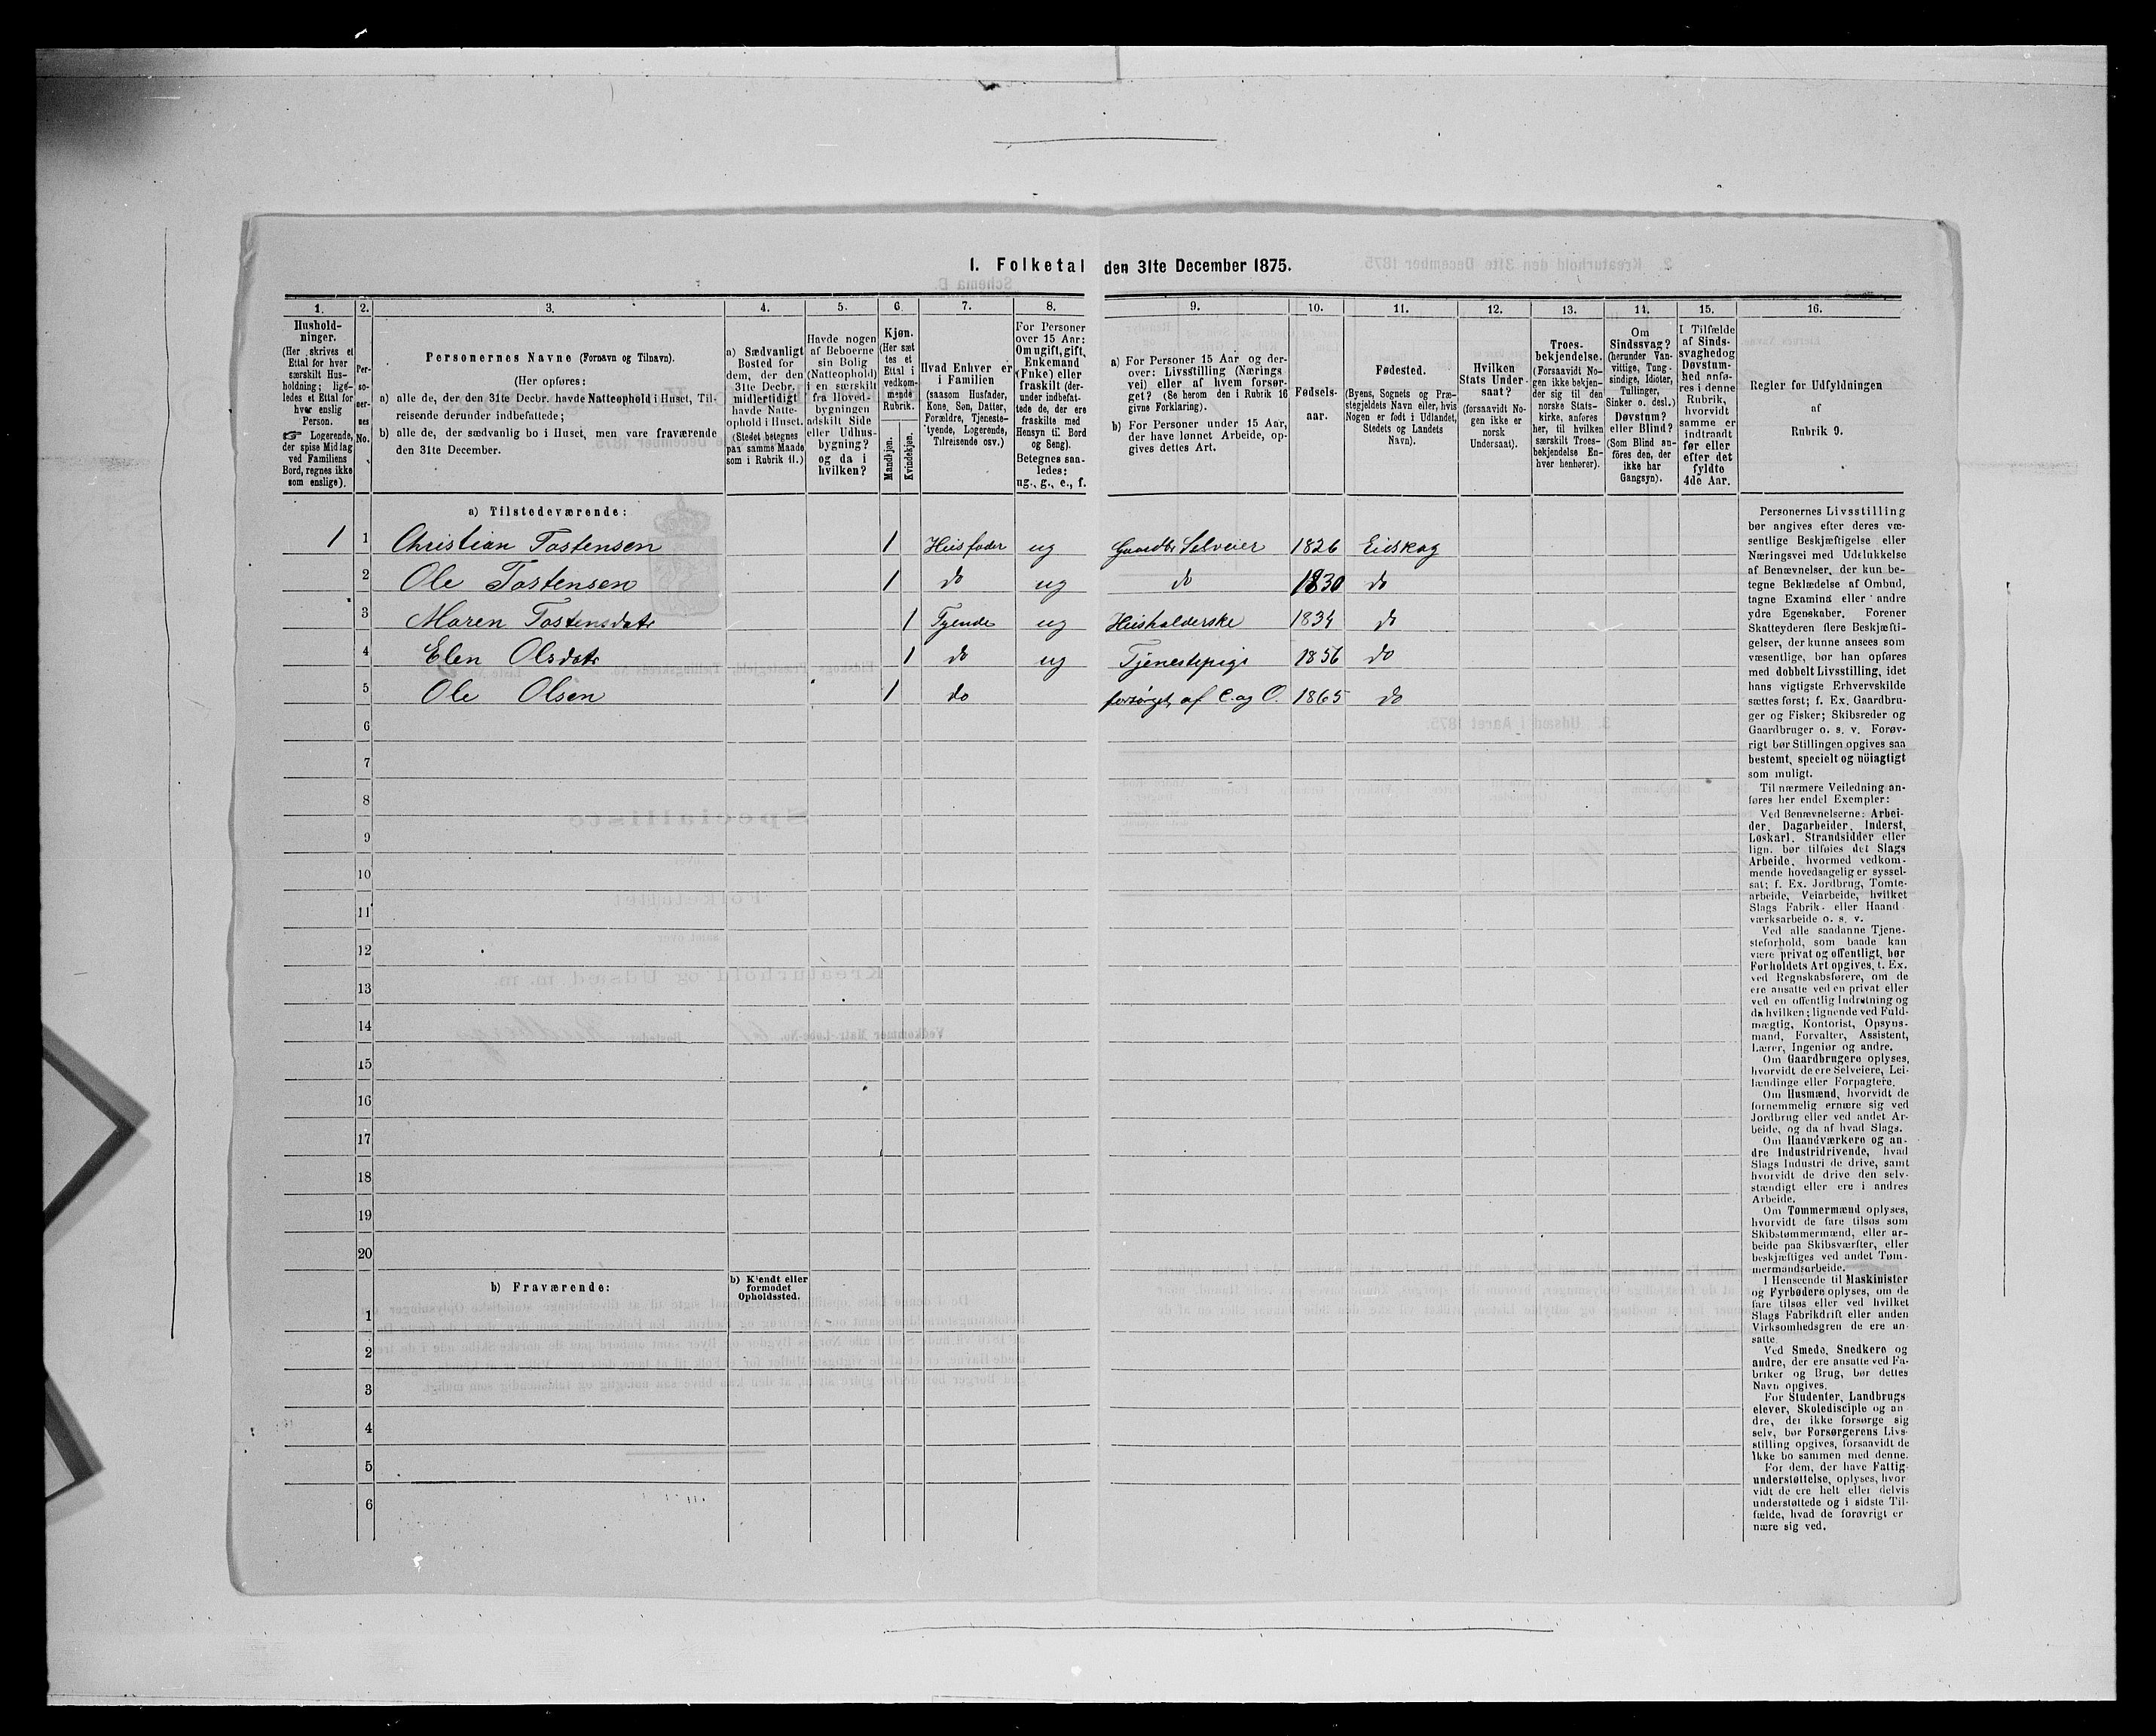 1. Folketal den 31te December 1875.
1. 2. 3. 4. 5. 6. 7. 8. 9. 10. 11. 12. 13. 14. 15. 16.
Hushold-
ninger.
(Her skrives et
Ettal for hver
særskilt Hus-
holdning; lige-
ledes et Ettal for
hver enslig
Person.
☞ Logerende,
der spise Middag
ved Familiens
Bord, regnes ikke
som enslige).
Per-
so-
ner-
nes
No.
Personernes Navne (Fornavn og Tilnavn).
(Her opføres:
a) alle de, der den 31te Decbr. havde Natteophold i Huset, Til-
reisende derunder indbefattede;
b) alle de, der sædvanlig bo i Huset, men vare fraværende
den 31te December.
a) Sædvanligt
Bosted for
dem, der den
31te Decbr.
midlertidigt
havde Natte-
ophold i Huset.
(Stedet betegnes
paa samme Maade
som i Rubrik 11.)
Havde nogen
af Beboerne
sin Bolig
(Natteophold)
i en særskilt
fra Hoved-
bygningen
adskilt Side
eller Udhus-
bygning?
og da i
hvilken?
Kjøn.
(Her sæt
tes et
Ettal i
vedkom-
mende
Rubrik.
Mandkjøn.
Kvindekjøn.
Hvad Enhver er
i Familien
(saasom Husfader,
Kone, Søn, Datter,
Forældre, Tjeneste-
tyende, Logerende,
Tilreisende osv.)
For Personer
over 15 Aar:
Om ugift, gift,
Enkemand
(Enke) eller
fraskilt (der-
under indbefat-
tede de, der ere
fraskilte med
Hensyn til Bord
og Seng).
Betegnes saa-
ledes:
ug., g., e., f.
a) For Personer 15 Aar og der-
over: Livsstilling (Nærings
vei) eller af hvem forsør-
get? (Se herom den i Rubrik 16
givne Forklaring).
b) For Personer under 15 Aar,
der have lønnet Arbeide, op-
gives dettes Art.
Fødsels-
aar.
Fødested.
(Byens, Sognets og Præ-
stegjeldets Navn eller, hvis
Nogen er født i Udlandet,
Stedets og Landets
Navn).
Hvilken
Stats Under-
saat?
(forsaavidt No-
gen ikke er
norsk
Undersaat).
Troes-
bekjendelse.
(Forsaavidt No-
gen ikke bekjen-
der sig til den
norske Stats-
kirke, anføres
her, til hvilken
særskilt Troes-
bekjendelse En-
hver henhører).
Om
Sindssvag?
(herunder Van-
vittige, Tung-
sindige, Idioter,
Tullinger,
Sinker o. desl.)
Døvstum?
eller Blind?
(Som Blind an-
føres den, der
ikke har
Gangsyn).
I Tilfælde
af Sinds-
svaghed og
Døvstum-
hed anfø-
res i denne
Rubrik,
hvorvidt
samme er
indtraadt
før eller
efter det
fyldte
4de Aar.
Regler for Udfyldningen
af
Rubrik 9.
a) Tilstedeværende:
1 1 Christian Tostensen 1 Husfader ug Gaardbr Selveier 1826 Eidskog
2 Ole Tostensen 1 do ug do 1830 do
3 Maren Tostensdatr 1 Tyende ug Husholderske 1834 do
4 Elen Olsdatr 1 do ug Tjenestepige 1856 do
5 Ole Olsen 1 do forsørget af C. og O. 1865 do
6
7
8
9
10
11
12
13
14
15
16
17
18
19
20
b) Fraværende:
b) Kjendt eller
formodet
Opholdssted.
1
2
3
4
5
6
Personernes Livsstilling
bør angives efter deres væ-
sentlige Beskjæftigelse eller
Næringsvei med Udelukkelse
af Benævnelser, der kun be-
tegne Beklædelse af Ombud,
tagne Examina eller andre
ydre Egenskaber. Forener
Skatteyderen flere Beskjæfti-
gelser, der kunne ansees som
væsentlige, bør han opføres
med dobbelt Livsstilling, idet
hans vigtigste Erhvervskilde
sættes først; f. Ex. Gaardbru-
ger og Fisker; Skibsreder og
Gaardbruger o. s. v. Forøv-
rigt bør Stillingen opgives saa
bestemt, specielt og nöiagtigt
som muligt.
Til nærmere Veiledning an-
føres her endel Exempler:
Ved Benævnelserne: Arbei-
der, Dagarbeider, Inderst,
Løskarl, Strandsidder eller
lign. bør tilføies det Slags
Arbeide, hvormed vedkom-
mende hovedsagelig er syssel-
sat; f. Ex. Jordbrug, Tomte-
arbeide, Veiarbeide, hvilket
Slags Fabrik- eller Haand
værksarbeide o. s. v.
Ved alle saadanne Tjene-
steforhold, som baade kan
være privat og offentligt, bør
Forholdets Art opgives, t. Ex.
ved Regnskabsførere, om de
ere ansatte ved en privat eller
ved en offentlig Indretning og
da hvilken; lignende ved Fuld-
mægtig, Kontorist, Opsyns-
mand, Forvalter, Assistent,
Lærer, Ingeniør og andre.
Om Gaardbrugere oplyses,
hvorvidt de ere Selveiere, Lei-
lændinge eller Forpagtere.
Om Husmænd, hvorvidt de
fornemmelig ernære sig ved
Jordbrug eller ved andet Ar-
beide, og da af hvad Slags.
Om Haandværkere og an-
dre Industridrivende, hvad
Slags Industri de drive, samt
hvorvidt de drive den selv-
stændigt eller ere i andres
Arbeide.
Om Tømmermænd oplyses,
hvorvidt de fare tilsøs som
Skibstømmermænd, eller ar-
beide paa Skibsværfter, eller
beskjæftiges ved andet Tøm-
mermandsarbeide.
I Henseende til Maskinister
og Fyrbødere oplyses, om de
fare tilsøs eller ved hvilket
Slags Fabrikdrift eller anden
Virksomhedsgren de ere an-
satte.
Ved Smede, Snedkere og
andre, der ere ansatte ved Fa-
briker og Brug, bør dettes
Navn opgives.
For Studenter, Landbrugs
elever, Skoledisciple og an
dre, der ikke forsørge sig
selv, bør Forsørgerens Livs-
stilling opgives, forsaavidt de
ikke bo sammen med denne.
For dem, der have Fattig-
understøttelse, oplyses, hvor
vidt de ere helt eller delvis
understøttede og i sidste Til-
fælde, hvad de forøvrigt er
nære sig ved.